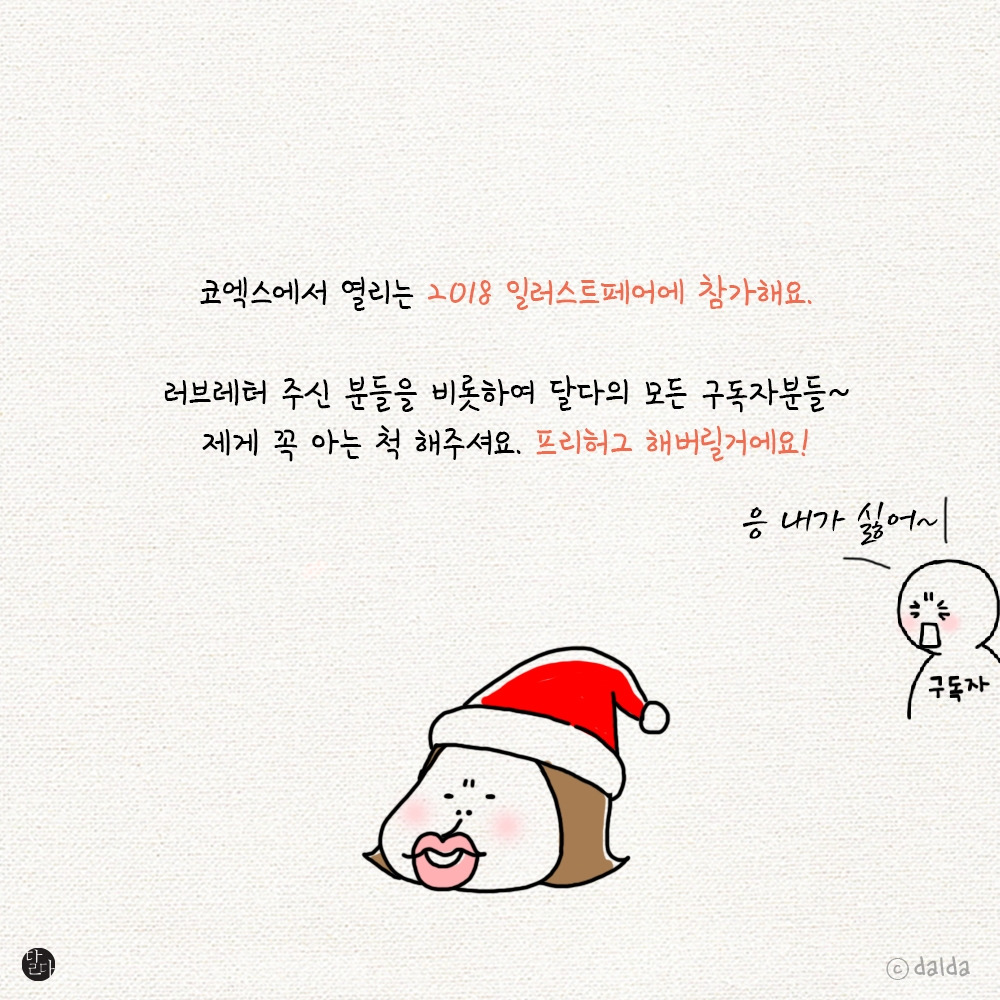 코엑스에서 열리는 2018 일러스트페어에 참가해요.
러브레터 주신 분들을 비롯하여 달다의 모든 구독자분들~
제게 꼭 아는 척 해주셔요. 프리허그 해버릴거에요!
응 내가 싫어~
구독자
달다
ⓒdalda